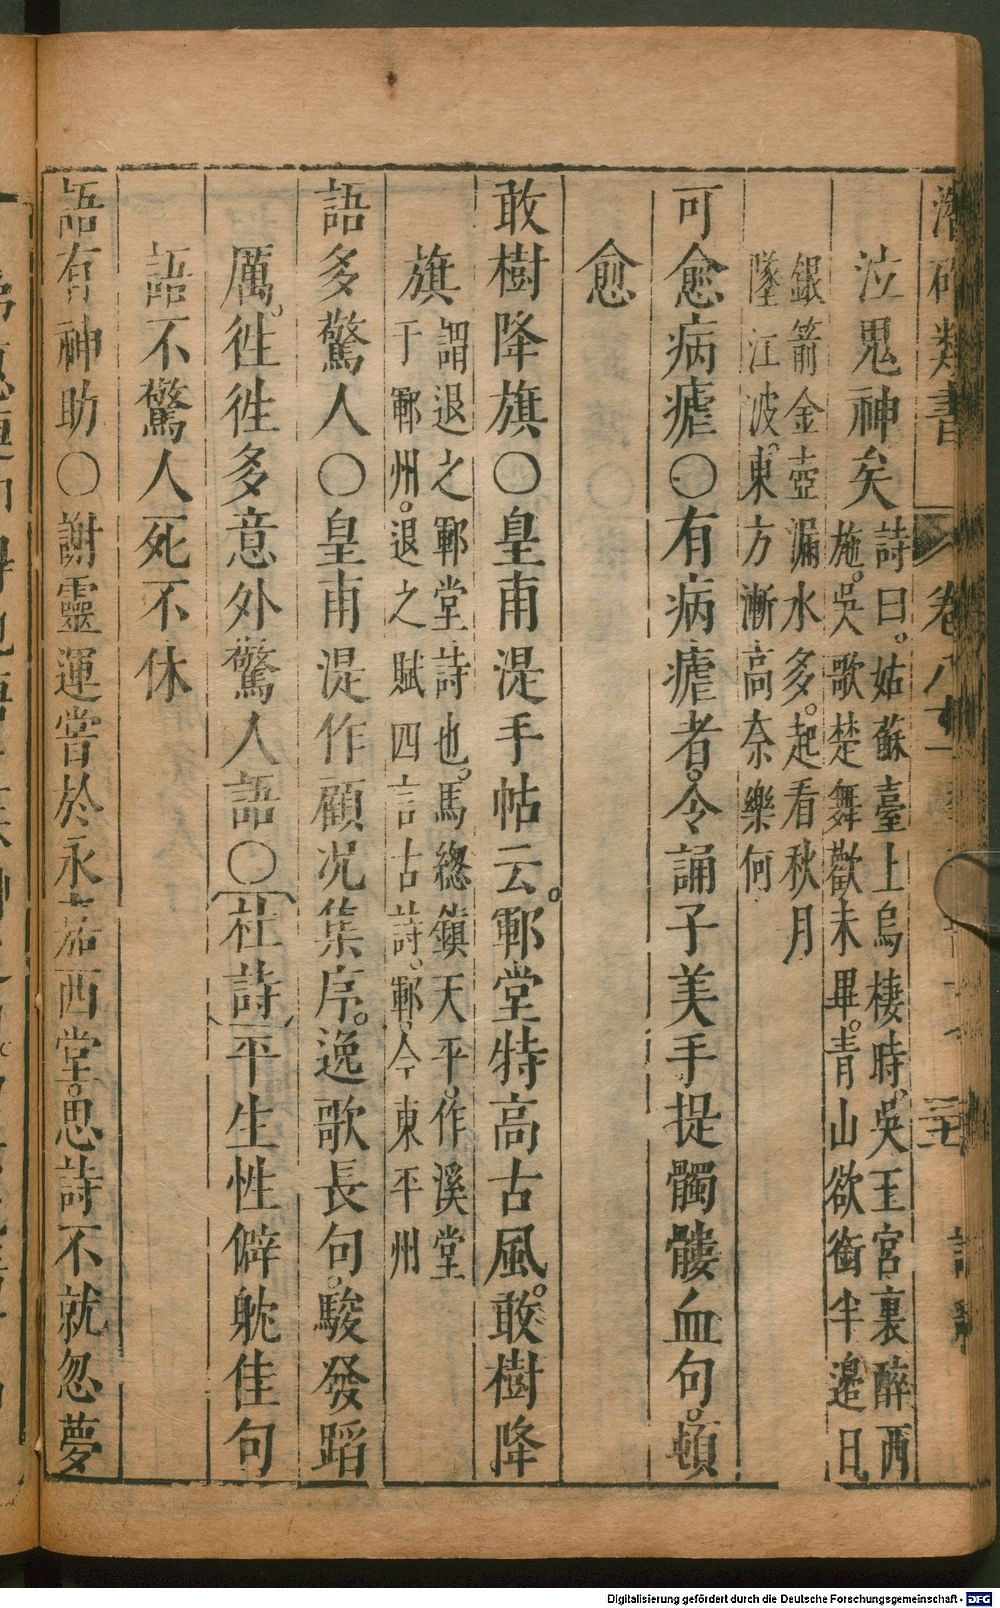 潛確類書 卷八十一 三 詩
泣鬼神矣詩曰。姑蘇臺上烏棲時、吳王宮裏醉西
施。吳歌楚舞歡未畢。青山欲銜半邊日
銀箭金壺漏水多。起看秋月
墜江波。東方漸高奈樂何
可愈病瘧〇有病瘧者。令誦子美手提髑髏血句。頓
愈
敢樹降旗〇皇甫湜手帖云。鄆堂特高古風。敢樹降
旗謂退之鄆堂詩也。馬緫鎮天平。作溪堂
于鄆州。退之賦四言古詩。鄆、今東平州
語多驚人〇皇甫湜作顧况集序。逸歌長句。駿發蹈
厲。徃徃多意外驚人語〇杜詩平生性僻躭佳句
語不驚人死不休
語有神助〇謝靈運嘗於永嘉西堂。思詩不就忽夢
Digitalisierung gefördert durch die Deutsche Forschungsgemeinschaft - DFG